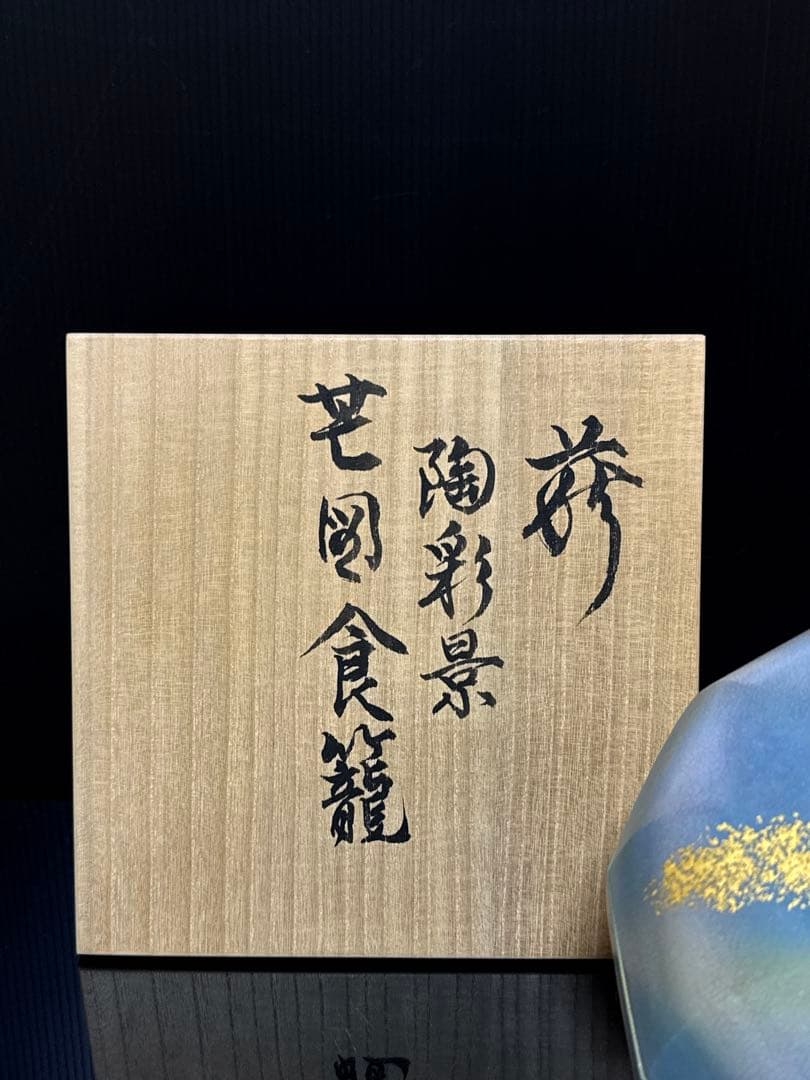 萩
陶彩景
芒図食籠